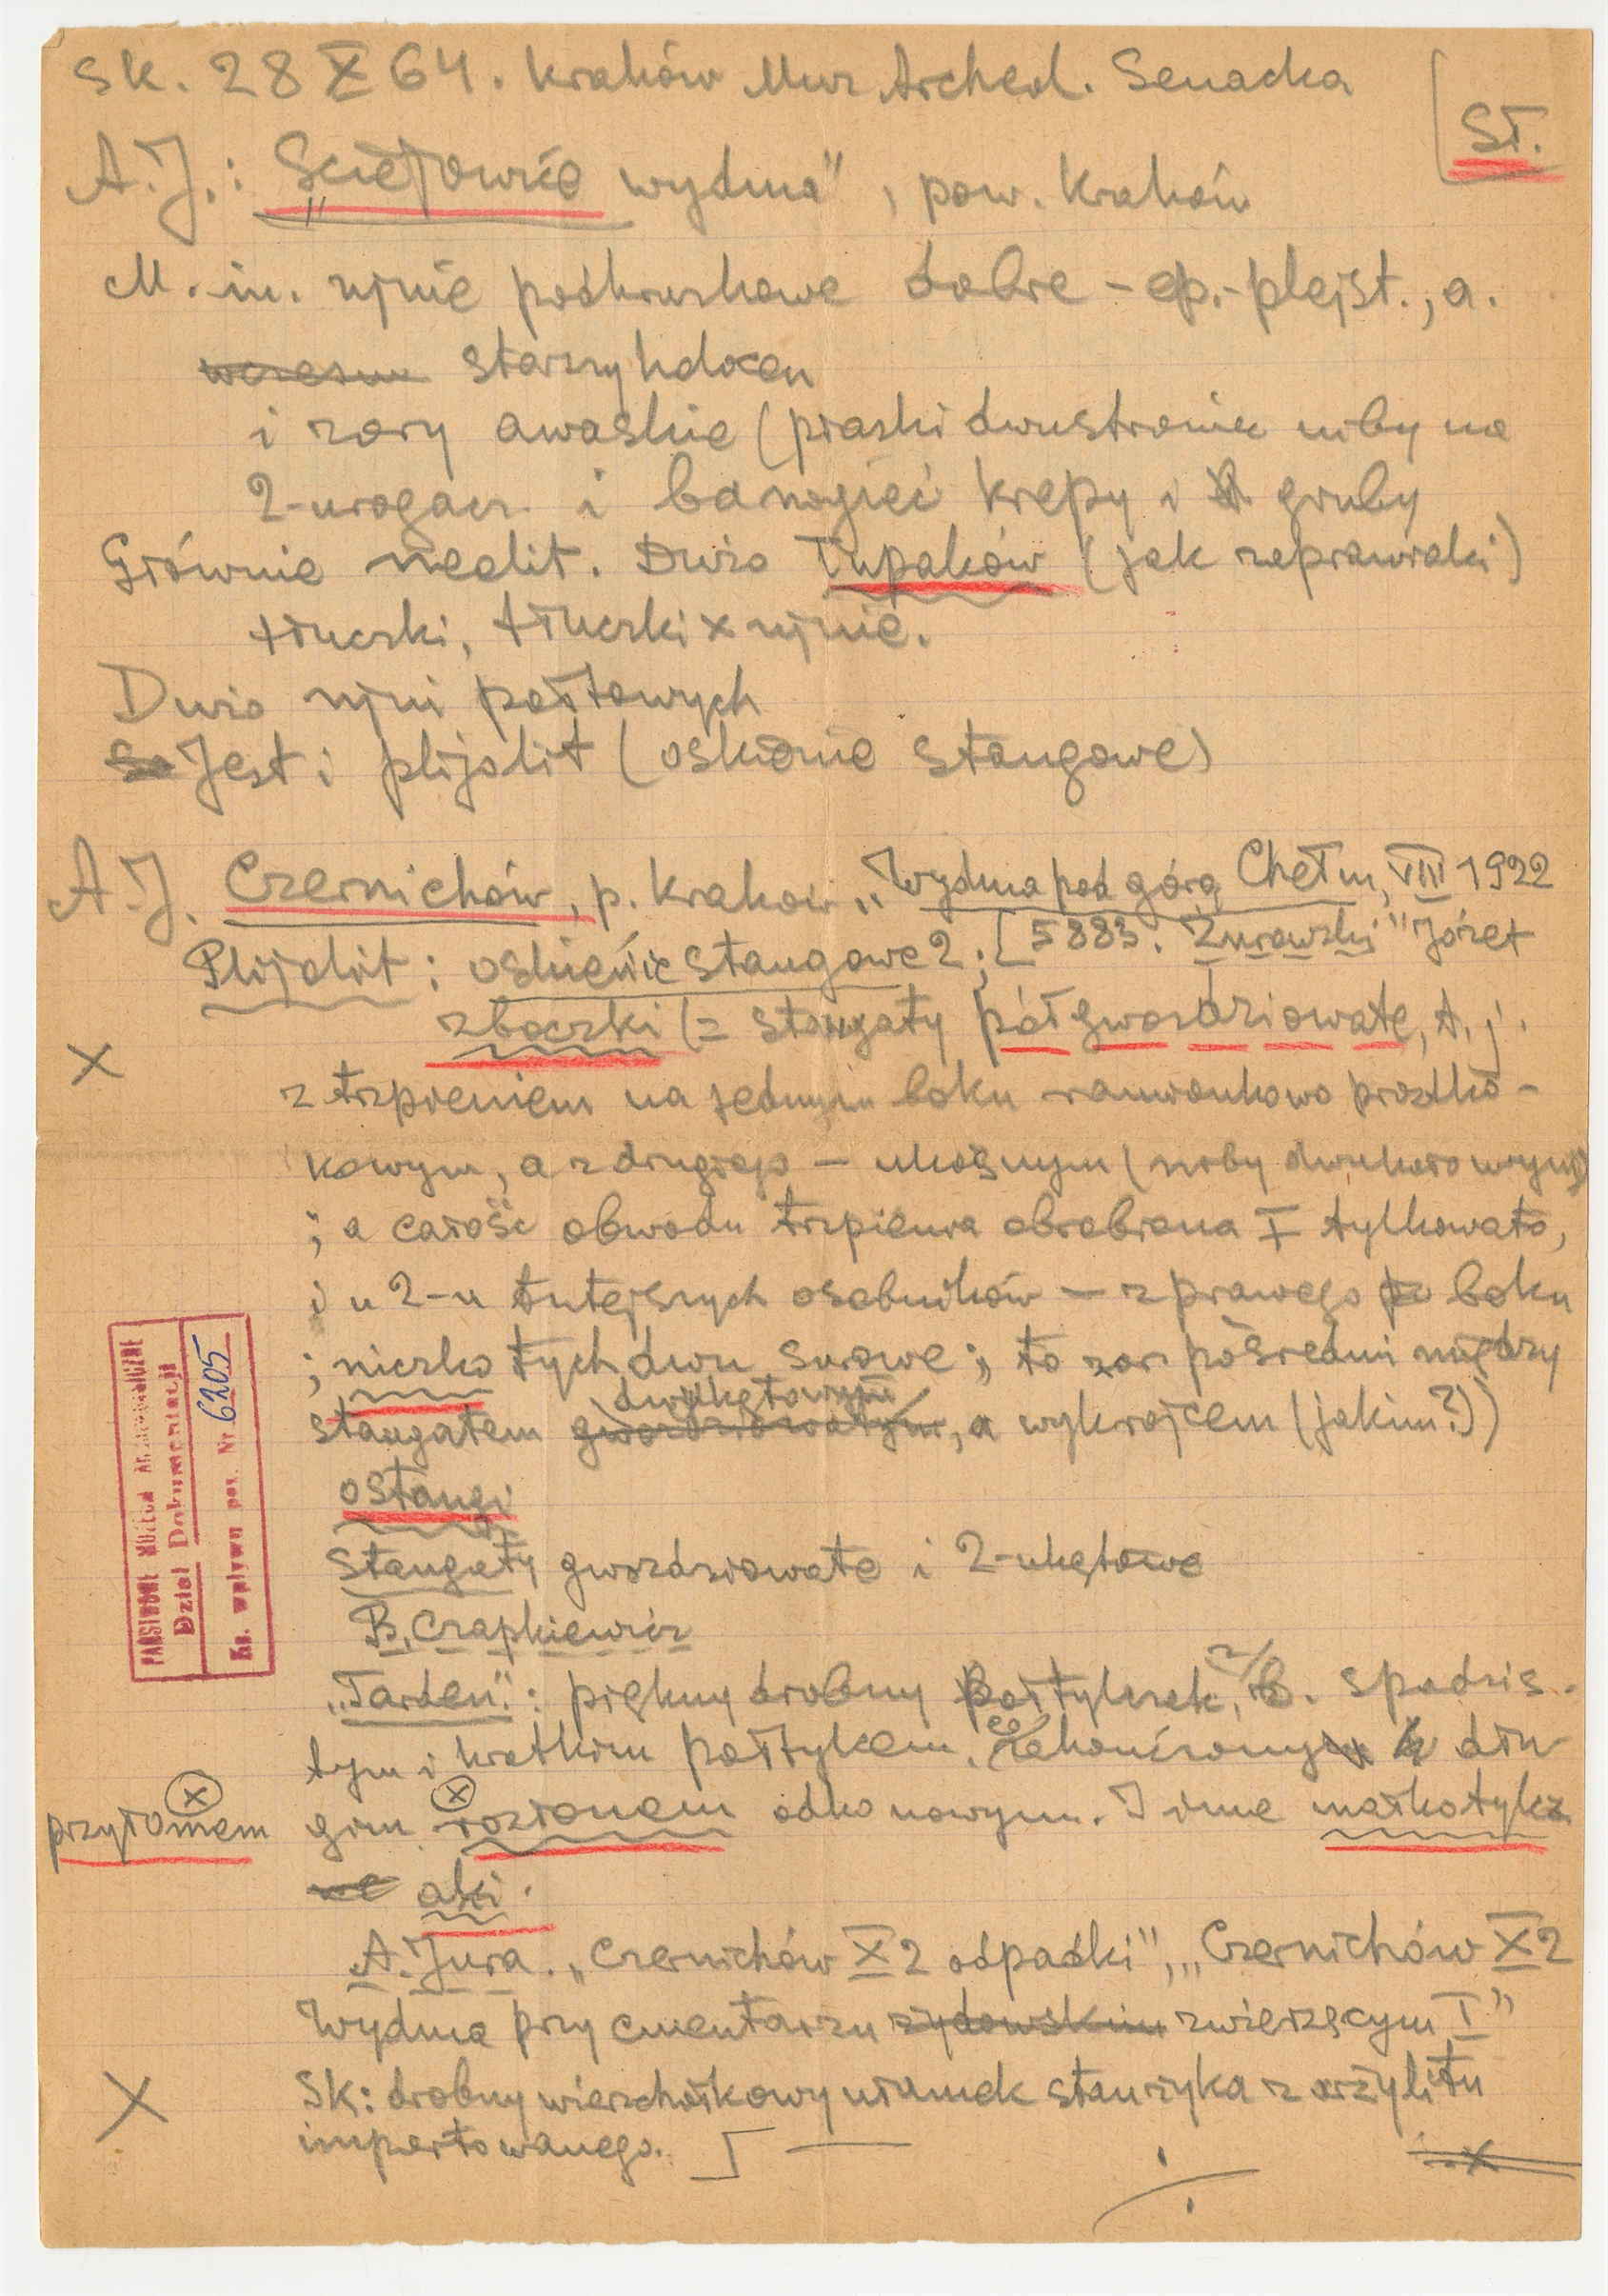 Sk. 28 X 64. Kraków Muz. Archeol. Senacka
[St.
A.J.: „Ściejowice wydma", pow. Kraków
M. in. rylnie podkruszkowe dobre - ep.-plejst., a.
starzyholocen
i zary awaskie (piaski dwustronne niby na
2-urogacz. i banogieć krępy i gruby
Głównie neolit. Dużo łupaków (jak zeprawiaki)
tłuczki, tłuczki x rylnie.
Dużo rylni połtowych
Jest i plijolit (oskienie stangowe)
A.J. Czernichów, p. Kraków „Wydma pod górą Chełm, VIII 1922
Plijolit: oskienie stangowe 2; [5883. Żurowski" Józef
zboczki (= stangaty półgwoździowate, t.j.
X
z trzpieniem na jednym boku ramionkowo prostką-
kowym, a z drugiego - ukośnym (niby dwukątowym)
; a całość obwodu trzpienia obrobiona ± tylkowato,
i u 2-u tutejszych osobników - z prawego boku
; niczko tych dwu surowe; to zar. pośredni między
stangatem gwoździowatym dwukątowym, a wykrojcem (jakim?))
ostangi
stangaty gwoździowate i 2-ukątowe
B. Czapkiewicz
„Tarden": piękny drobny połtylczek, z b. spadzis-
tym i krótkim połtykiem, zakończony dłu-
gim rozłonem odkonowym. I inne małkotylcz
przyłomem
aki.
A. Jura. „Czernichów X 2 odpadki", „Czernichów X 2
Wydma przy cmentarzu żydowskim zwierzęcym I"
X
SK: drobny wierzchołkowy ułamek staurzyka z arzylitu
importowanego. ]
PAŃSTWOWE MUZEUM ARCHEOLOGICZNE
Dział Dokumentacji
Ks. wpływu poz. Nr 6205